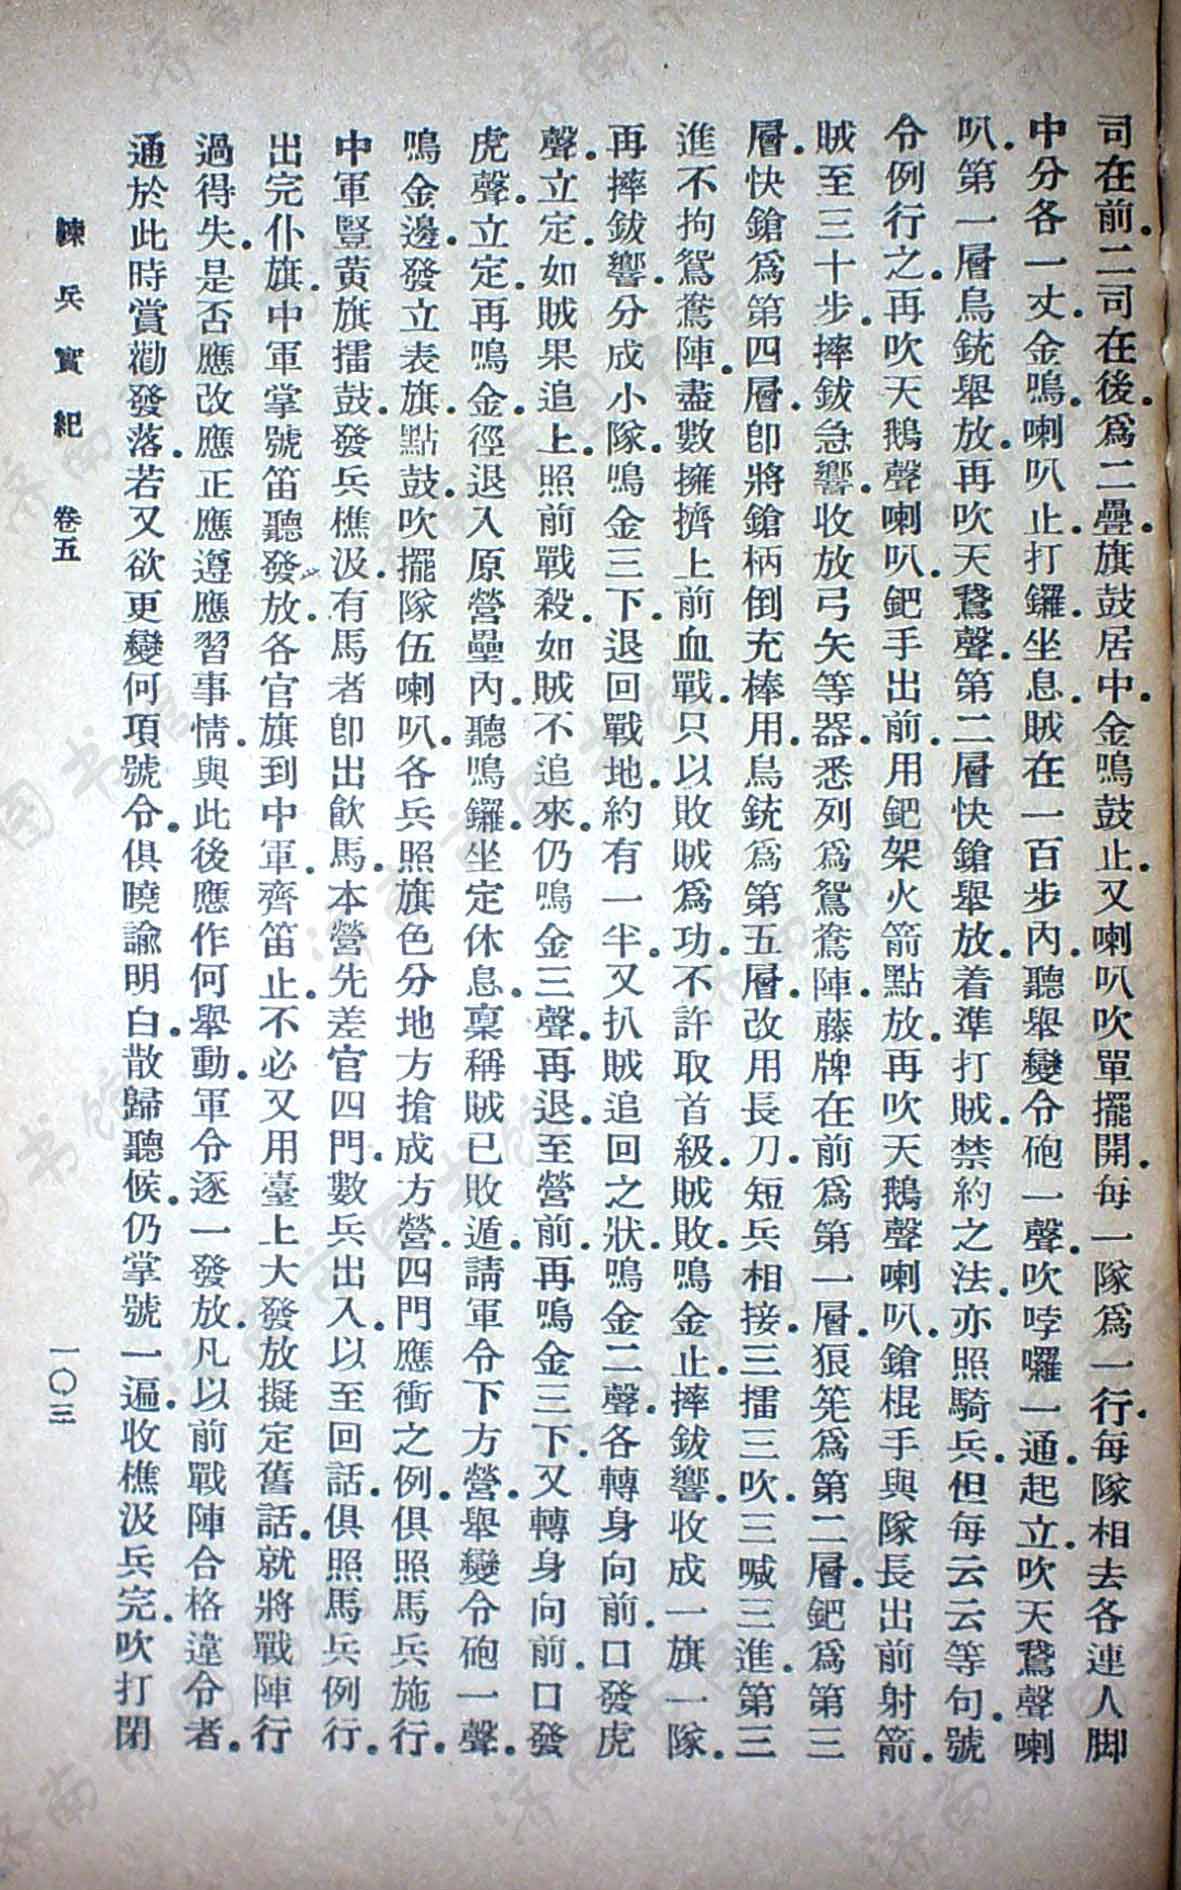 司在前。二司在後。爲二疊。旗鼓居中。金鳴鼓止。又喇叭吹單擺開。每一隊爲一行。每隊相去各連人脚
中分各一丈。金鳴。喇叭止。打鑼。坐息。賊在一百步內。聽舉變令砲一聲。吹哱囉一通。起立。吹天鵞聲喇
叭。第一層鳥銃舉放。再吹天鵞聲。第二層快鎗舉放。着準打賊。禁約之法。亦照騎兵。但每云云等句。號
令例行之。再吹天鵝聲喇叭。鈀手出前。用鈀架火箭點放。再吹天鵝聲喇叭。鎗棍手與隊長出前射箭。
賊至三十步。摔鈸急響。收放弓矢等器。悉列爲鴛鴦陣。藤牌在前爲第一層。狼筅爲第二層。鈀爲第三
層。快鎗爲第四層。卽將鎗柄倒充棒用。鳥銃爲第五層。改用長刀。短兵相接。三擂三吹。三喊三進。第三
進不拘鴛鴦陣。盡數擁擠上前血戰。只以敗賊爲功。不許取首級。賊敗。鳴金止。摔鈸響。收成一旗一隊。
再摔鈸響。分成小隊。鳴金三下。退回戰地。約有一半。又扒賊追回之狀。鳴金二聲。各轉身向前。口發虎
聲。立定。如賊果追上。照前戰殺。如賊不追來。仍鳴金三聲。再退。至營前。再鳴金三下。又轉身向前。口發
虎聲。立定。再鳴金。徑退入原營壘內。聽鳴鑼。坐定休息。稟稱賊已敗遁。請軍令下方營。舉變令砲一聲。
鳴金邊。發立表旗。點鼓。吹擺隊伍喇叭。各兵照旗色分地方搶成方營。四門應衝之例。俱照馬兵施行。
中軍豎黃旗擂鼓。發兵樵汲。有馬者卽出飮馬。本營先差官四門。數兵出入。以至回話。俱照馬兵例行。
出完仆旗。中軍掌號笛。聽發放。各官旗到中軍。齊笛止。不必又用臺上大發放擬定舊話。就將戰陣行
過得失。是否應改應正應遵應習事情。與此後應作何舉動。軍令逐一發放。凡以前戰陣合格違令者。
通於此時賞勸發落。若又欲更變何項號令。俱曉諭明白。散歸聽候。仍掌號一遍。收樵汲兵完。吹打閉
練兵實紀 卷五 一〇三